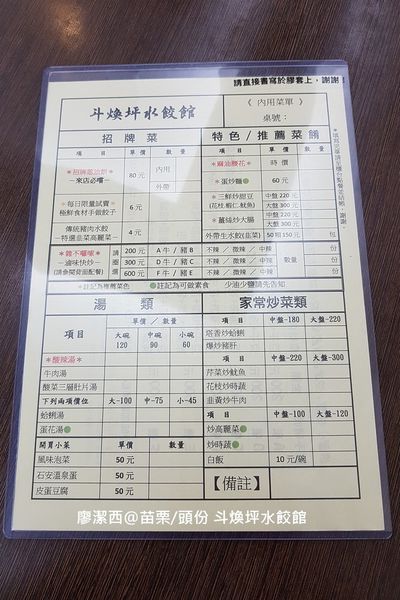 請直接書寫於膠套上，謝謝！
斗煥坪水餃館
《 內用菜單 》
桌號：
招牌菜
項目 單價 數量
*招牌蔥油餅*
～來店必嚐～
80 元
內用
外帶
*每日限量試賣*
極鮮食材手做餃子
6 元
傳統豬肉水餃
～特選韭菜高麗菜～
4 元
特色/推薦菜餚
項目 單價 數量
*麻油腰花* 時價
*蛋炒麵 60 元
*三鮮炒甜豆
(花枝.蝦仁.魷魚)
中盤 220 元
大盤 300 元
*薑絲炒大腸
中盤 220 元
大盤 300 元
外帶生水餃(韭菜) 50 顆 150 元 包
*雜不囉嗦*
～滷味快炒～
(請參閱背面配餐)
請圈
200 元 A 牛 / 豬 B 不辣 / 微辣 / 中辣
300 元 D 牛 / 豬 C 不辣 / 微辣 / 中辣
600 元 F 牛 / 豬 E 不辣 / 微辣 / 中辣
數量
份
份
份
*註記為推薦菜色 註記為可做素食 少油少鹽請先告知
湯類
項目
單價 / 數量
大碗 120
中碗 90
小碗 60
*酸辣湯*
牛肉湯
酸菜三層肚片湯
下列兩項價位 大-100 中-75 小-45
蛤蜊湯
蛋花湯
開胃小菜 單價 數量
風味泡菜 50 元
石安溫泉蛋 50 元
皮蛋豆腐 50 元
家常炒菜類
項目 中盤-180 大盤-220
塔香炒蛤蜊
爆炒豬肝
項目 中盤-220 大盤-300
芹菜炒魷魚
花枝炒時蔬
韭黃炒牛肉
項目 中盤-100 大盤-120
炒高麗菜
炒時蔬
白飯 10 元/碗
【備註】
廖潔西@苗栗/頭份 斗煥坪水餃館